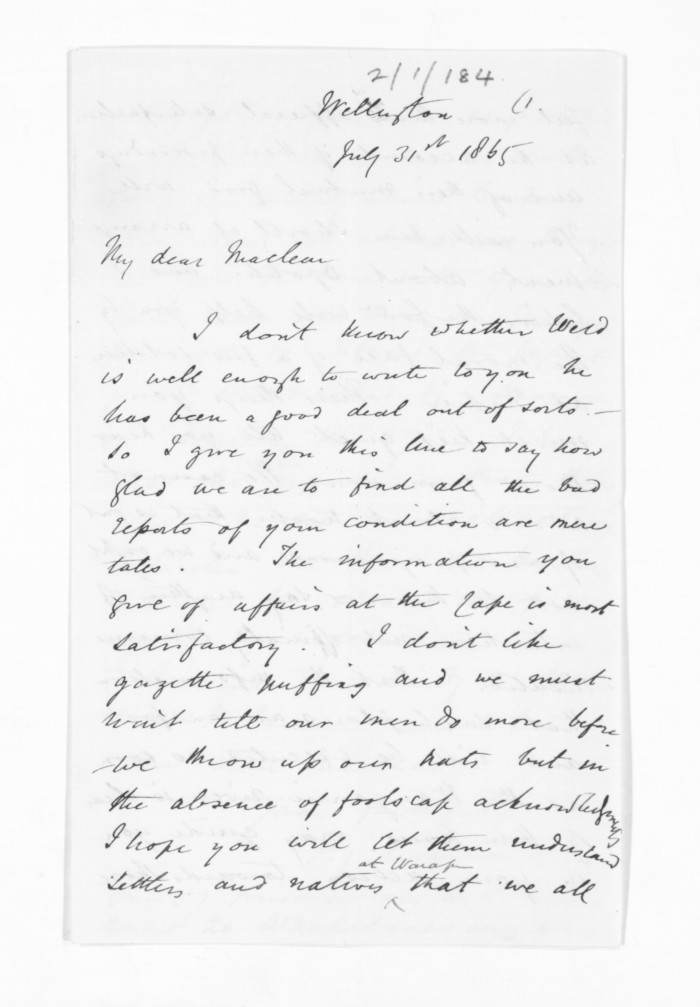 2/1/184.
Wellington (1.
July 31st 1865
My dear Maclean
I don't know whether Weld
is well enough to write to you he
has been a good deal out of sorts —
so I give you this line to say how
glad we are to find all the bad
reports of your condition are mere
tales. The information you
give of affairs at the Cape is most
satisfactory. I don't like
gazette puffing and we must
wait till our men do more before
we throw up our hats but in
the absence of foolscap acknowledgments
I hope you will let them understand
at
settlers and natives that we all